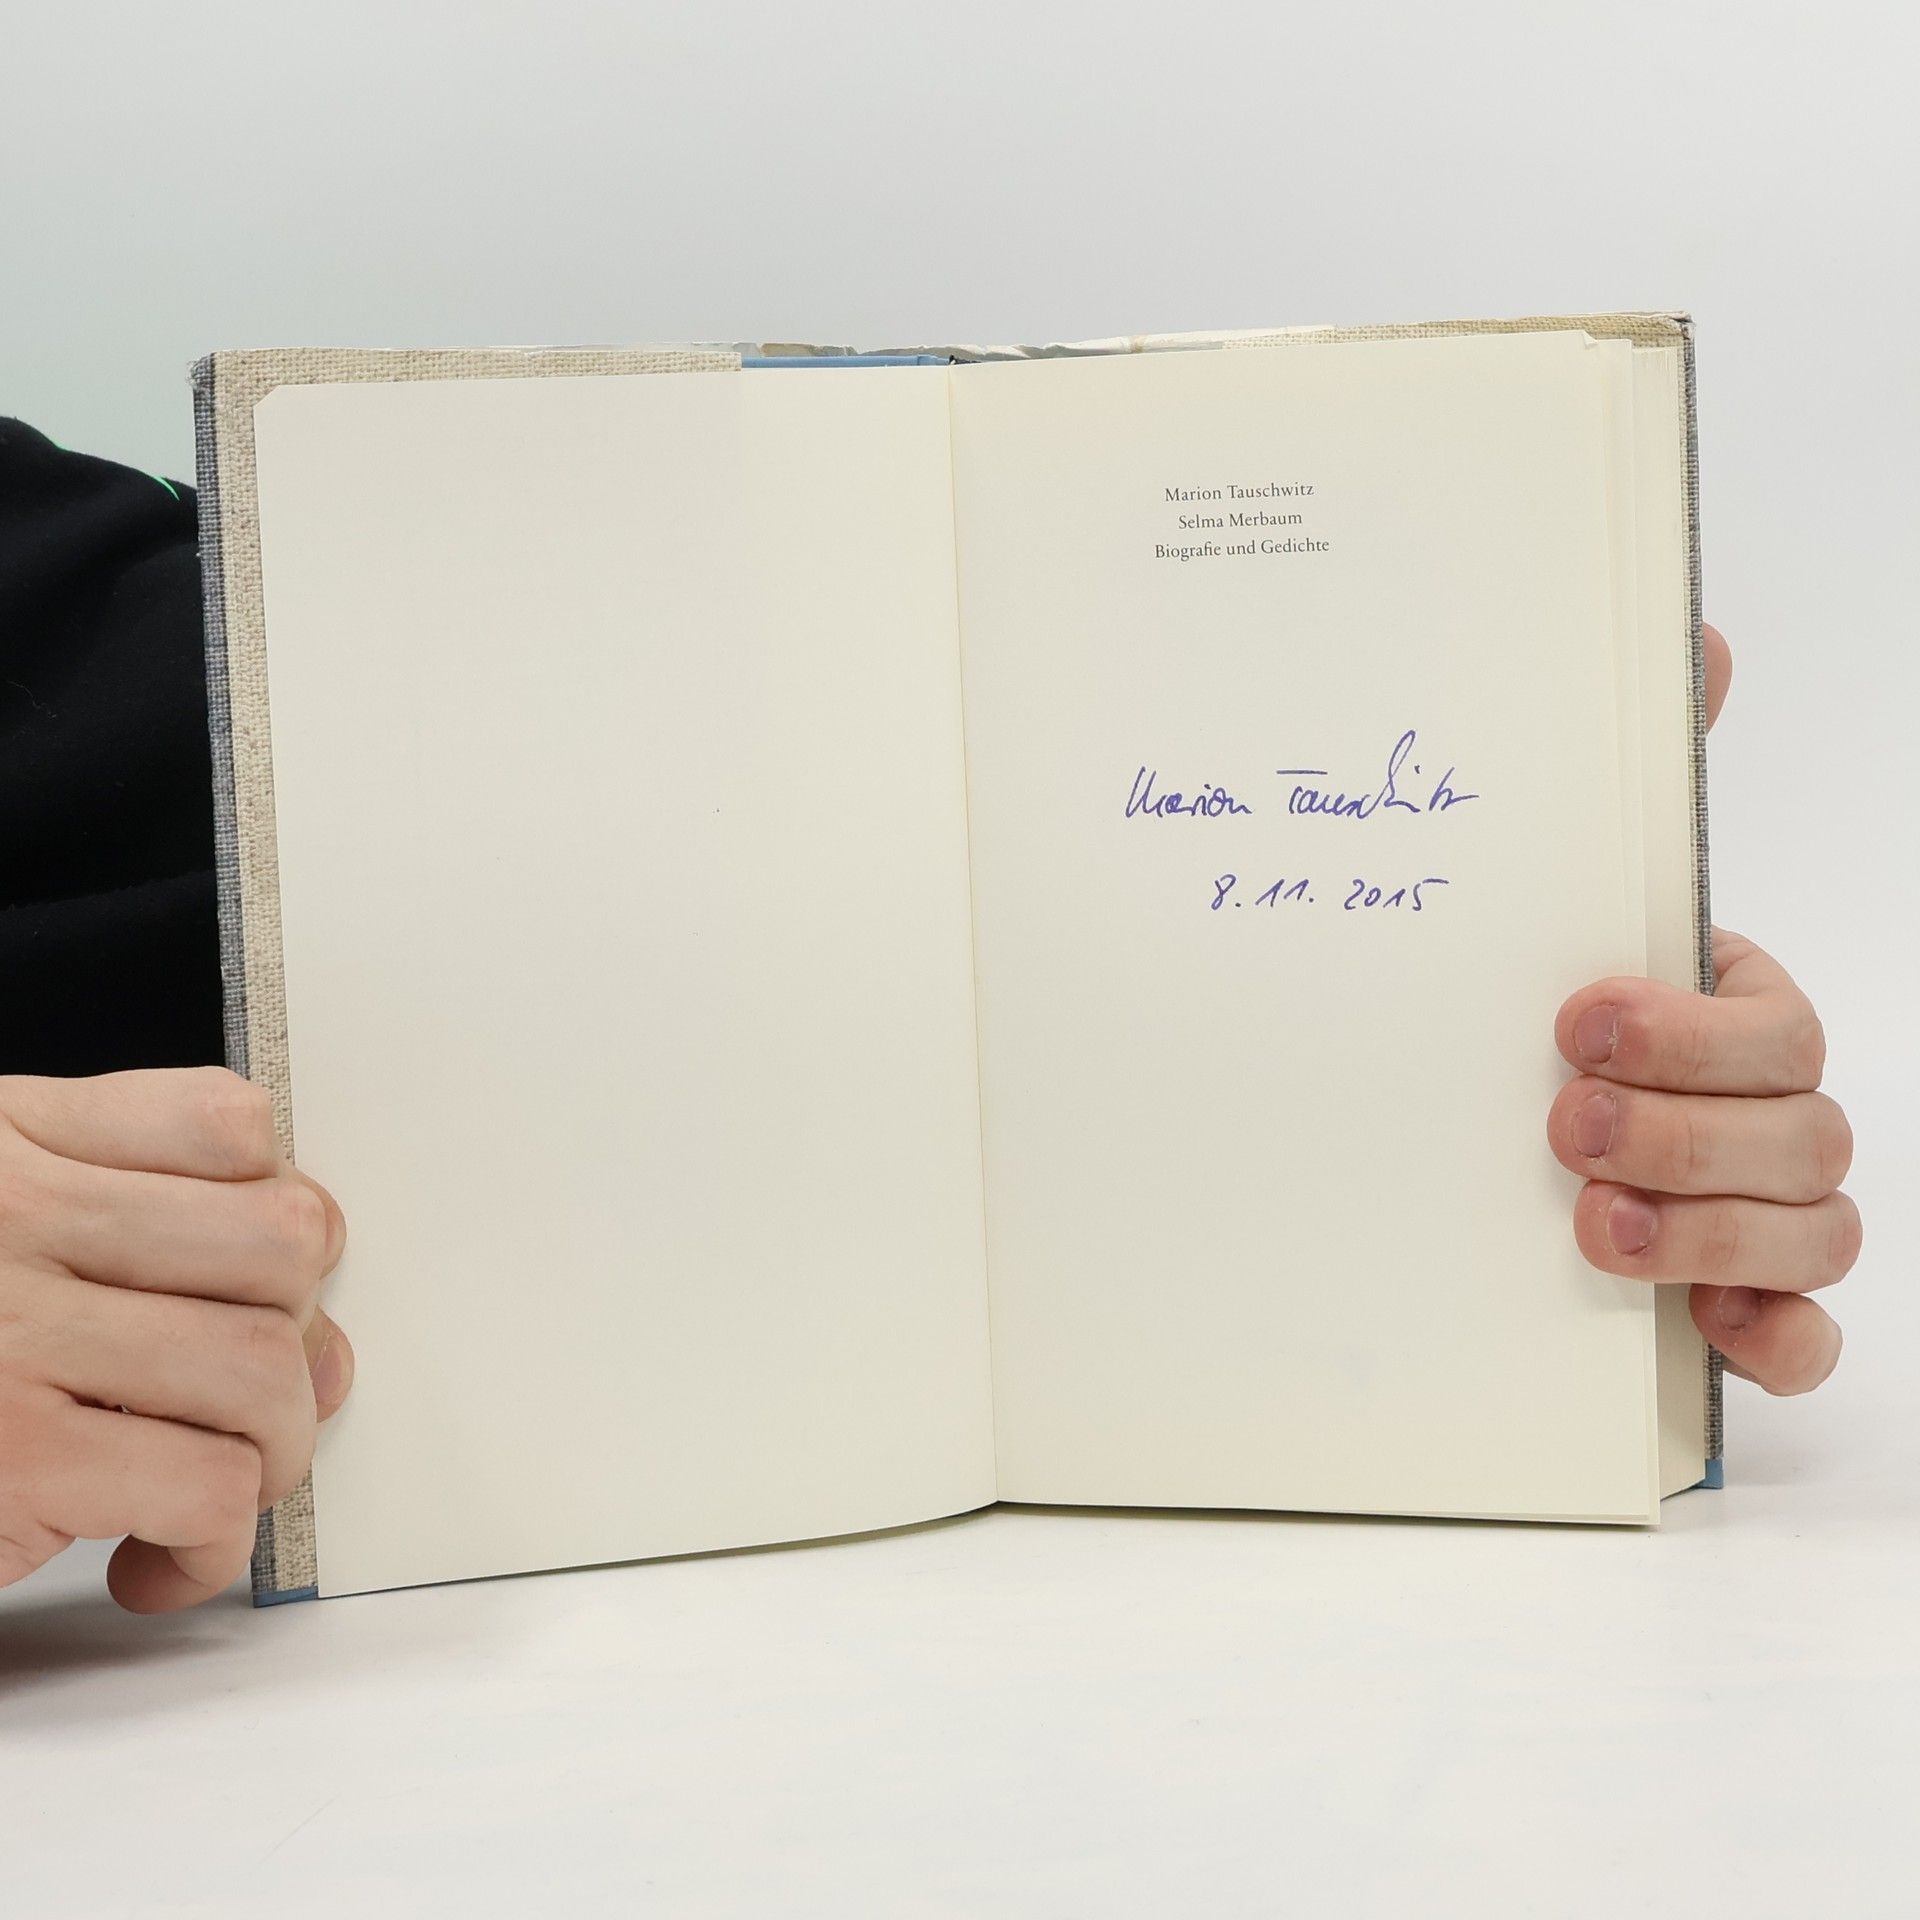 Marion Tauschwitz
Selma Merbaum
Biografie und Gedichte
Marion Tauschwitz
8. 11. 2015